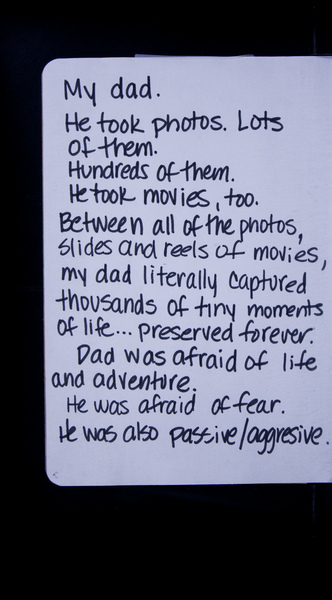 My dad.
He took photos. Lots
of them.
Hundreds of them.
He took movies, too.
Between all of the photos,
slides and reels of movies,
my dad literally captured
thousands of tiny moments
of life... preserved forever.
Dad was afraid of life
and adventure.
He was afraid of fear.
He was also passive/aggresive.